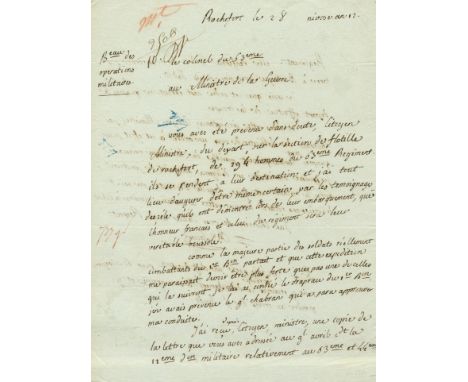 Rochefort le 28 nivose an 12.
Beau des
operations
militaires
le colonel du 63eme
au Ministre de la Guerre
vous avez été prévenu sans doute, Citoyen
Ministre, du départ sur la section de flotille
de rochefort, de 294 hommes du 63eme Regiment
ils se rendent à leur destination; et j'ai tout
lieu d'augurer d'être même certain, par les temoignages
de zèle qu'ils ont démontrés lors de leur embarquement, que
l'honneur français et celui du regiment sera leur
veritable boussole.
comme la majeure partie des soldats réellement
combattants du 1er Bon partait et que cette expedition
me paraissait devoir être plus forte que pas une de celles
qui la suivront, je lui ai confié le drapeau du 1er Bon
j'en avais prévenu le gl chabran qui a paru approuver
ma conduite.
J'ai reçu depuis, Citoyen ministre, une copie de
la lettre que vous avez adressée au gl avril et la
12eme don militaire relativement au 63eme et 44em